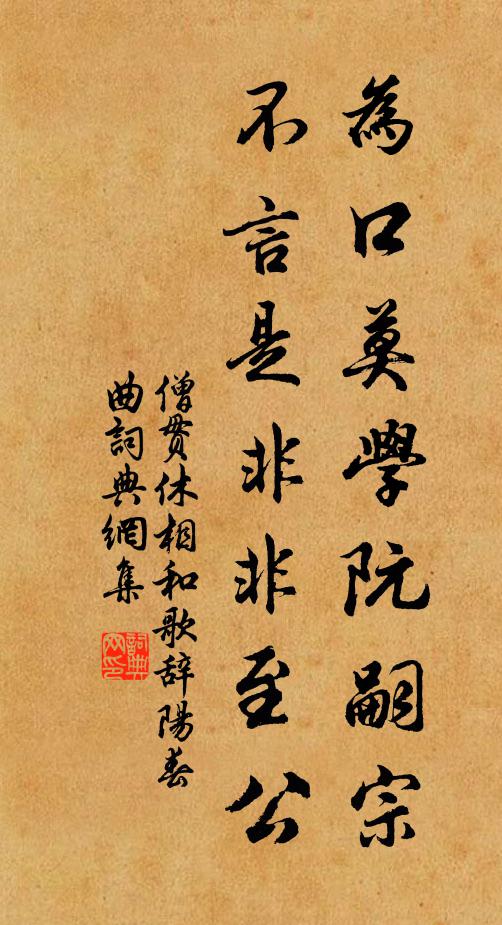 為口莫學阮嗣宗
不言是非非至公
僧貫休相和歌辞陽春
曲詞典網集
詞典
网印